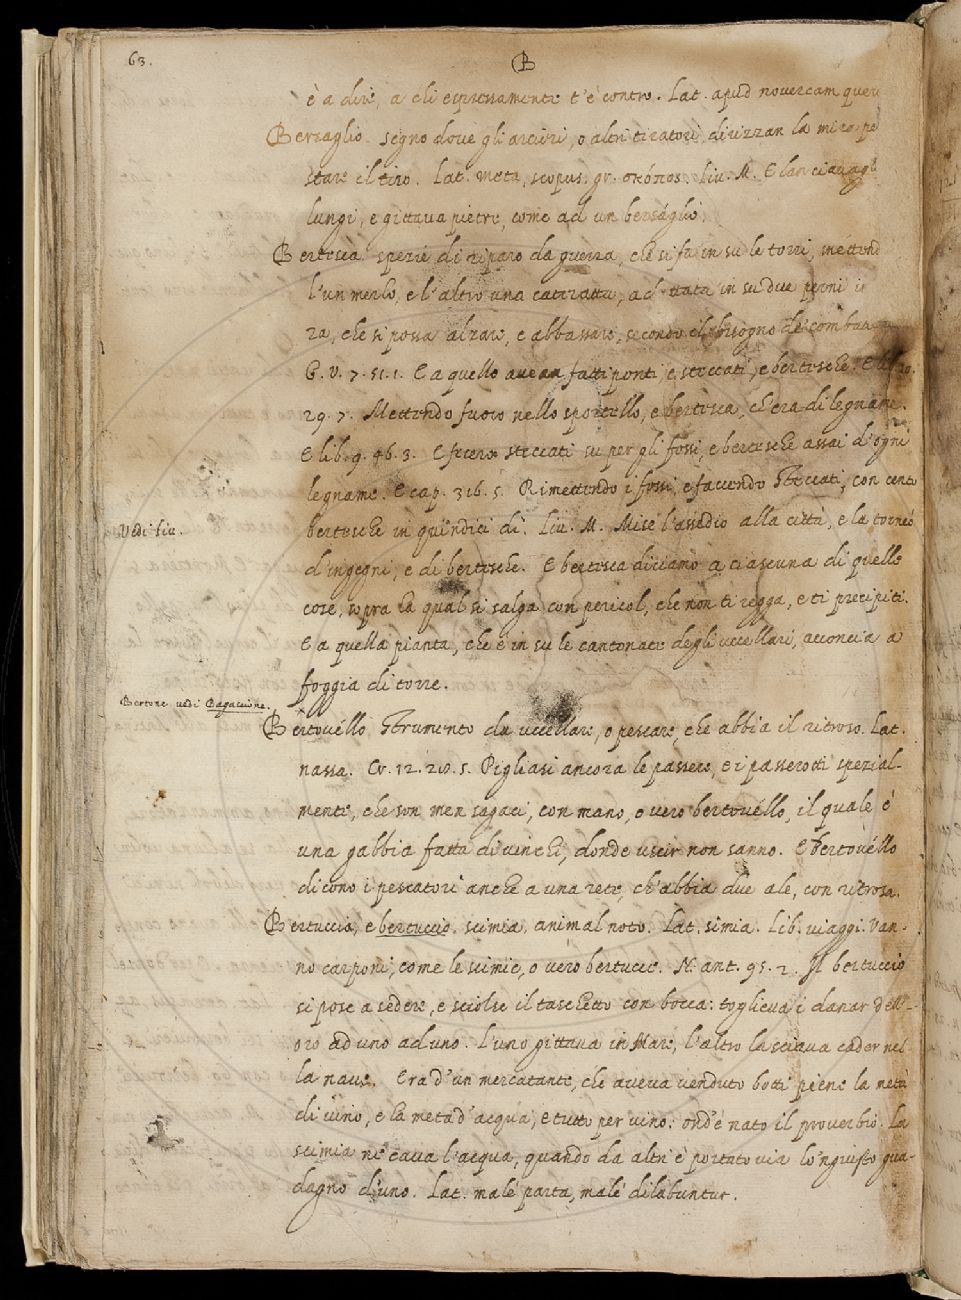 63.
B
è a dire, a chi espressamente t'è contro. Lat. apud novercam quer
Bersaglio. segno dove gli arcieri, o altri tiratori dirizzan la mira pe
stare il tiro. Lat. meta, scopus. gr. σκόπος. Liv. M. E lanciavagl
lungi, e gittava pietre, come ad un berságlio.
Bertesca. spezie di riparo da guerra, che si fa in su le torri, mettend
l'un merlo, e l'altro una cateratta, ad ttata in su due perni in
ra, che si possa alzare, e abbassare, secondo il bisogno de' combat
G. V. 7. 51. 1. E a quello avean fatti ponti, e steccati, e bertesche. E lib. 10.
29. 7. Mettendo fuoco nello sportello, e bertesca, ch'era di legname.
E lib. 9. 46. 3. E fecero steccati su per gli fossi, e bertesche assai d'ogni
legname. E cap. 316. 5. Rimettendo i fossi, e facendo steccati, con cento
Vedi liv.
bertesche in quindici dì. Liv. M. Mise l'assedio alla città, e la torneò
d'ingegni, e di bertesche. E bertesca diciamo a ciascuna di quelle
cose, sopra la qual si salga con pericol, che non ti regga, e ti precipiti.
E a quella pianta, che è in su le cantonate degli uccellari, acconcia a
foggia di torre.
Bertone vedi Bagascione.
Bertovéllo Strumento da uccellare, o pescare, che abbia il ritroso. Lat.
nassa. Cr. 12. 20. 5. Pigliasi ancora le passere, e i passerotti spezial-
mente, che son men sagaci, con mano, o vero bertovéllo, il quale è
una gabbia fatta di vinchi, donde uscir non sanno. E bertovéllo
dicono i pescatori anche a una rete, ch'abbia due ale, con ritrosa.
Bertuccia, e bertuccio. scimia. animal noto. Lat. simia. Lib. viaggi. Van-
no carponi, come le scimie, o vero bertucce. N. ant. 95. 2. Il bertuccio
si pose a sedere, e sciolse il taschetto con bocca: toglieva i danar dell'-
oro ad uno ad uno. L'uno gittava in Mare, l'altro lasciava cader nel-
la nave. Era d'un mercatante, che aveva venduto botti piene la metà
di vino, e la metà d'acqua, e tutto per vino: ond'è nato il proverbio. La
scimia ne cava l'acqua, quando da altri è portato via lo'ngiusto gua-
dagno d'uno. Lat. malè parta, malè dilabuntur.